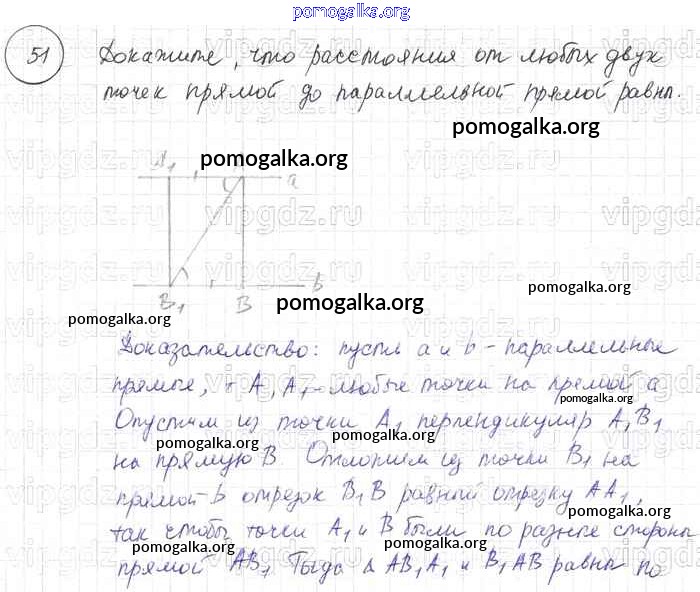 pomogalka.org
51 Докажите, что расстояния от любых двух
точек прямой до параллельной прямой равны.
pomogalka.org
A₁ pomogalka.org
a
B₁ B b
pomogalka.org pomogalka.org pomogalka.org
Доказательство: пусть a и b - параллельные
прямые, т A, A₁ - любые точки на прямой a
pomogalka.org
Опустим из точки A₁ перпендикуляр A₁B₁
pomogalka.org pomogalka.org
на прямую B. Отложим из точки B₁ на
прямой b отрезок B₁B равный отрезку AA₁,
pomogalka.org
так чтобы точки A₁ и B были по разные стороны
pomogalka.org pomogalka.org
прямой AB₁. Тогда ∆ AB₁A₁ и B₁AB равны по